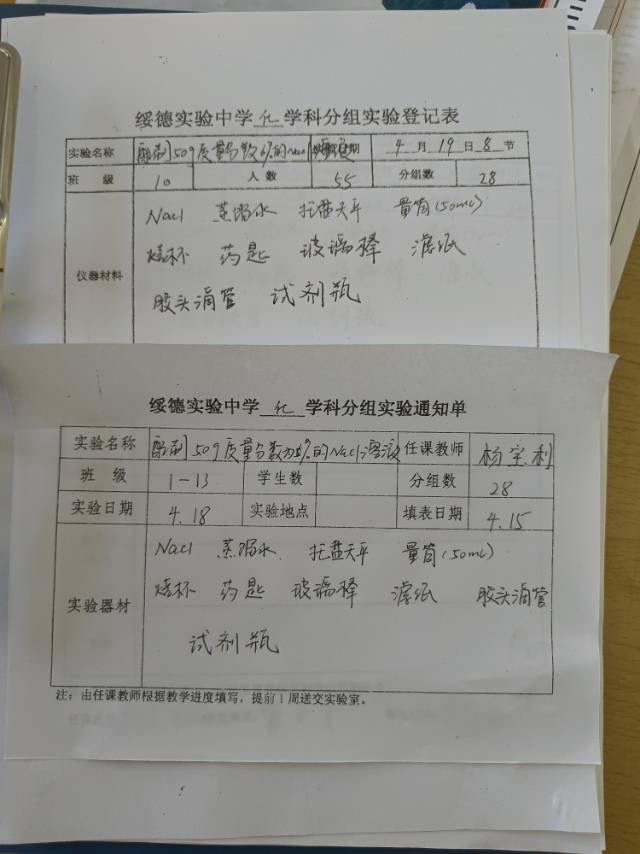 绥德实验中学 化 学科分组实验登记表
实验名称 配制50g质量分数6%的NaCl 日期 4 月 19 日 8 节
班 级 10 人 数 55 分组数 28
仪器材料
NaCl 蒸馏水 托盘天平 量筒(50mL)
烧杯 药匙 玻璃棒 滤纸
胶头滴管 试剂瓶
绥德实验中学 化 学科分组实验通知单
实验名称 配制50g质量分数为6%的NaCl溶液 任课教师 杨宝利
班 级 1-13 学生数 分组数 28
实验日期 4.18 实验地点 填表日期 4.15
实验器材
NaCl 蒸馏水 托盘天平 量筒(50mL)
烧杯 药匙 玻璃棒 滤纸 胶头滴管
试剂瓶
注：由任课教师根据教学进度填写，提前1周送交实验室。